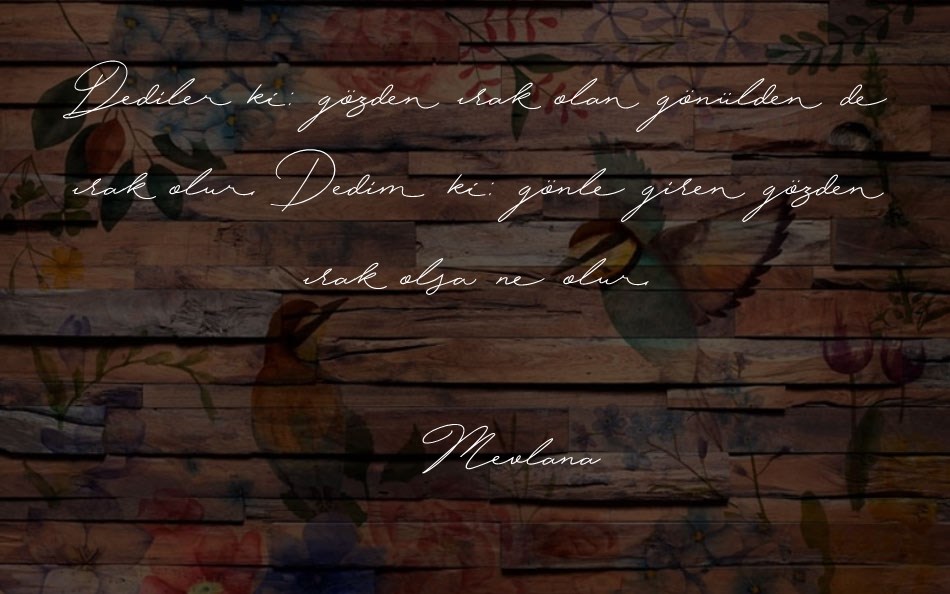 Dediler ki: gözden ırak olan gönülden de
ırak olur. Dedim ki: gönle giren gözden
ırak olsa ne olur.
Mevlana